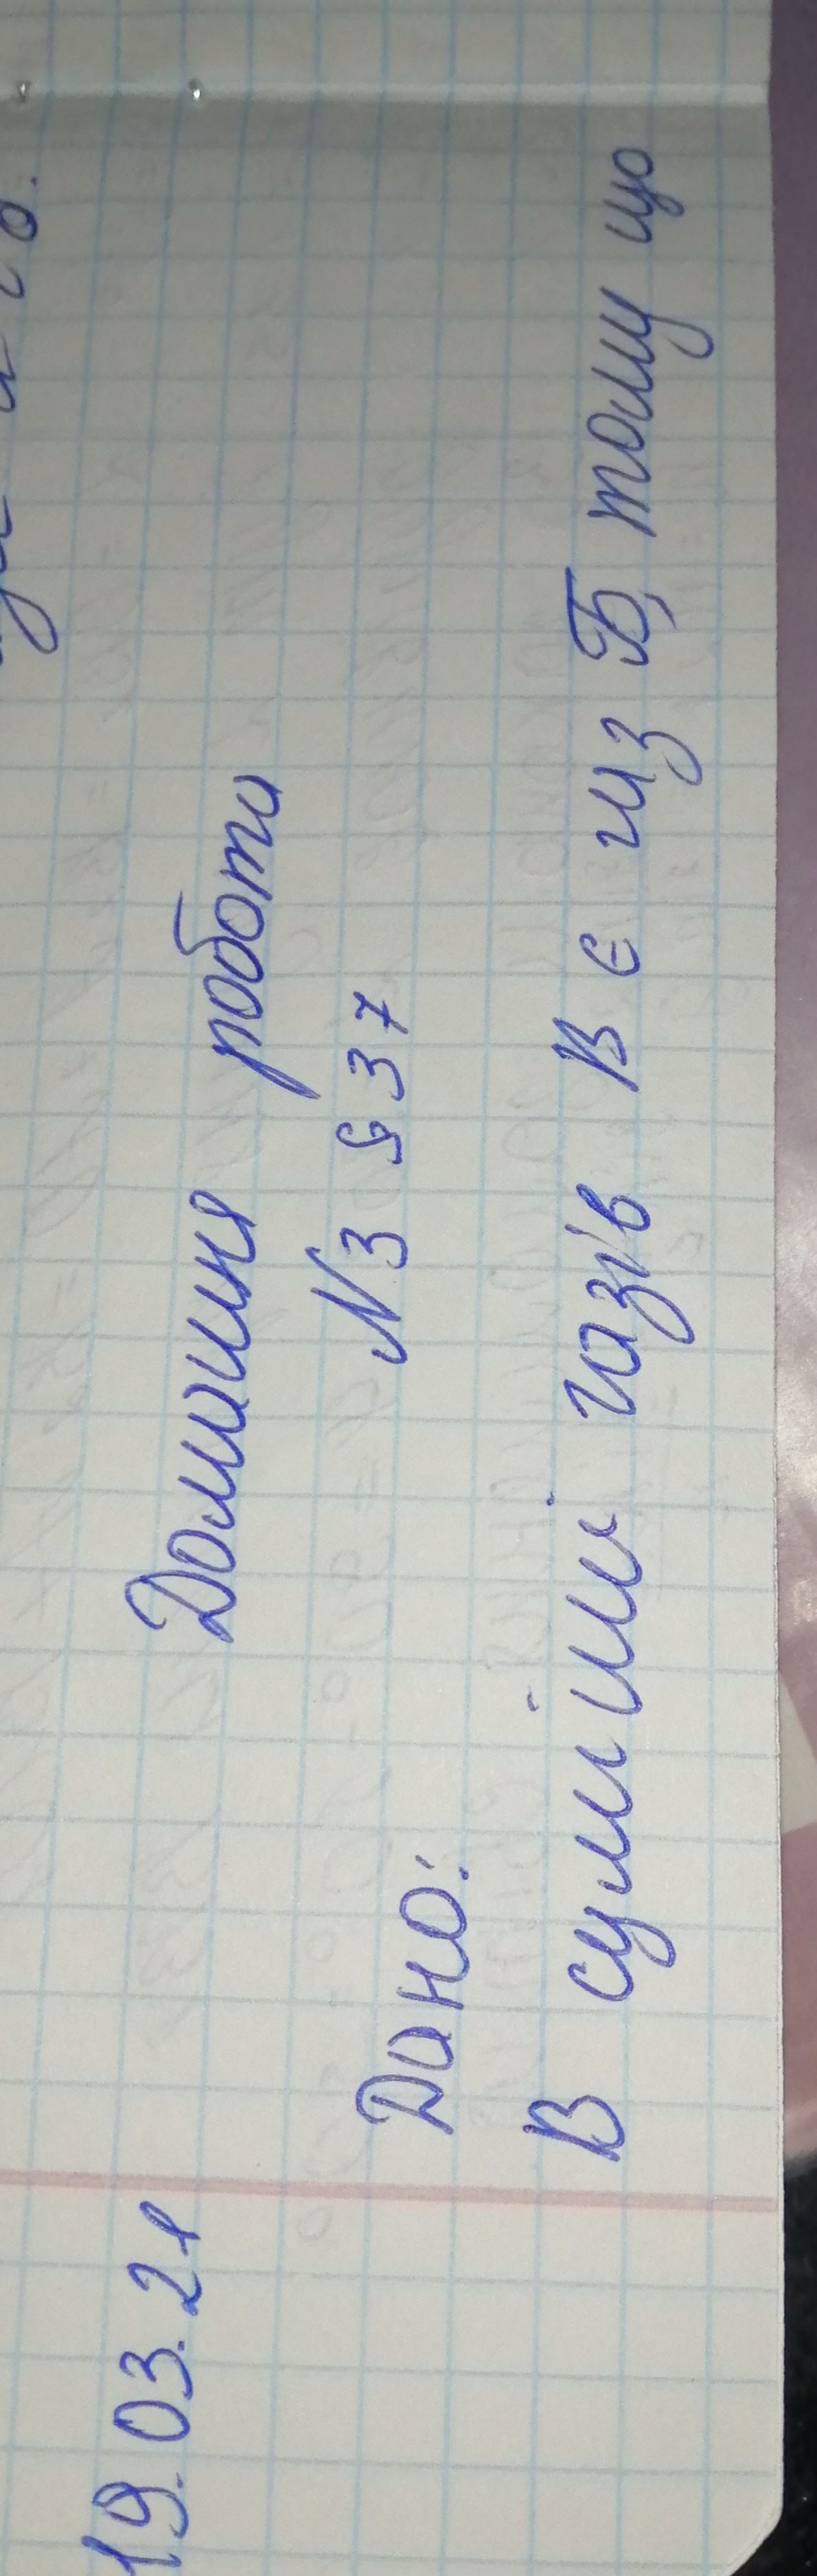 19.03.21
Домашня робота
N3 §37
Дано:
В суміші газів В є из Б, тому що